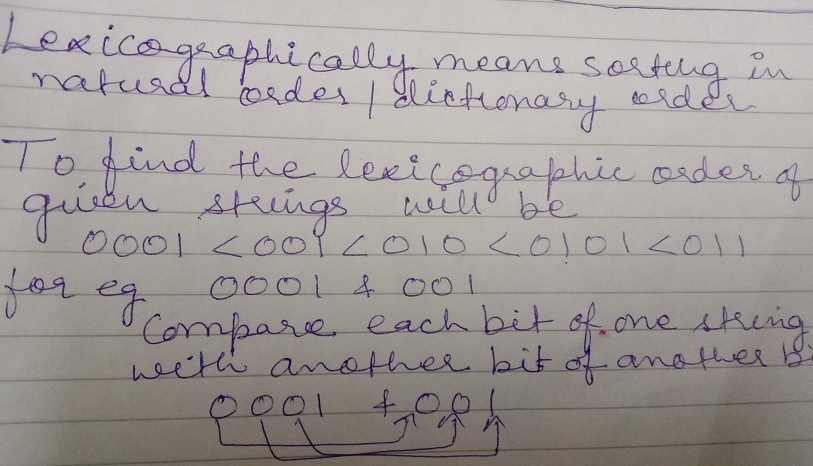 Lexicographically means sorting in
natural order / dictionary order
To find the lexicographic order of
given strings will be
0001 < 001 < 010 < 0101 < 011
for eg 0001 & 001
Compare each bit of one string
with another bit of another bi
0001 & 001